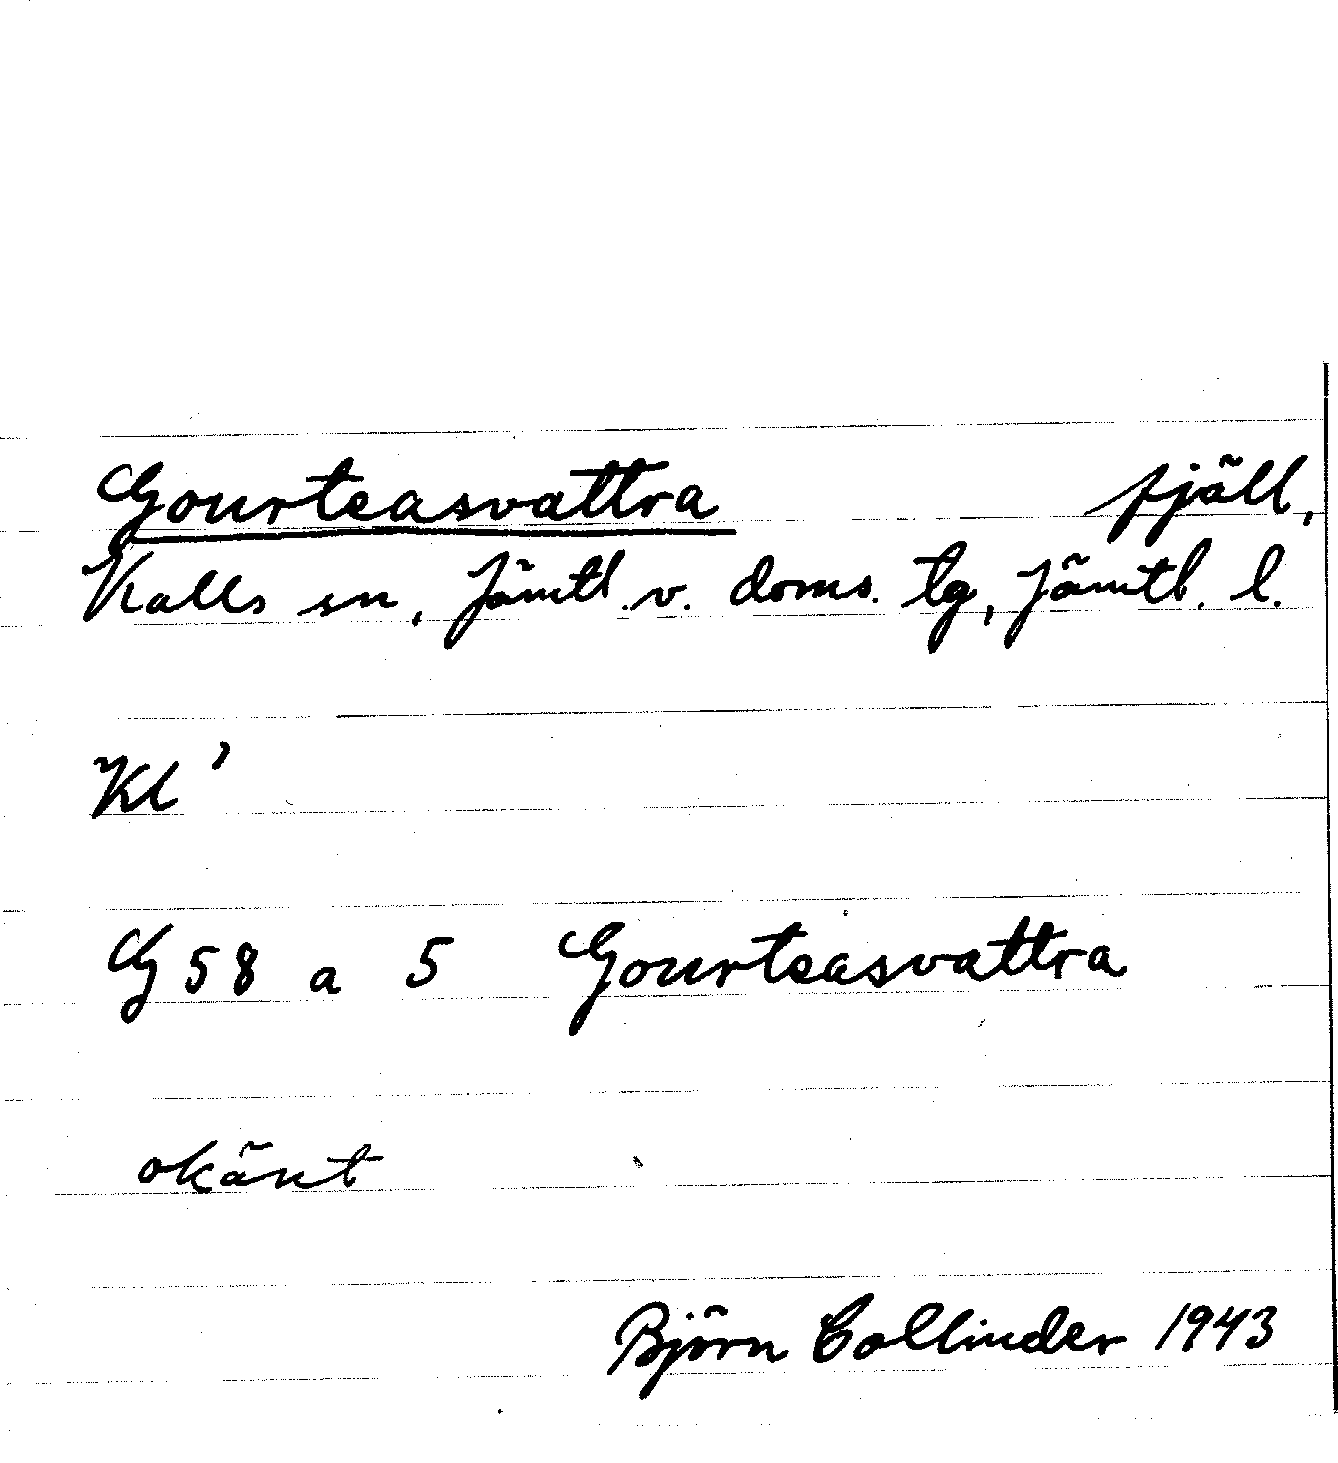 Gourteasvattra fjäll,
Kalls sn, Jämtl. v. doms. tg, Jämtl. l.
Kl'
G 58 a 5 Gourteasvattra
okänt
Björn Collinder 1943